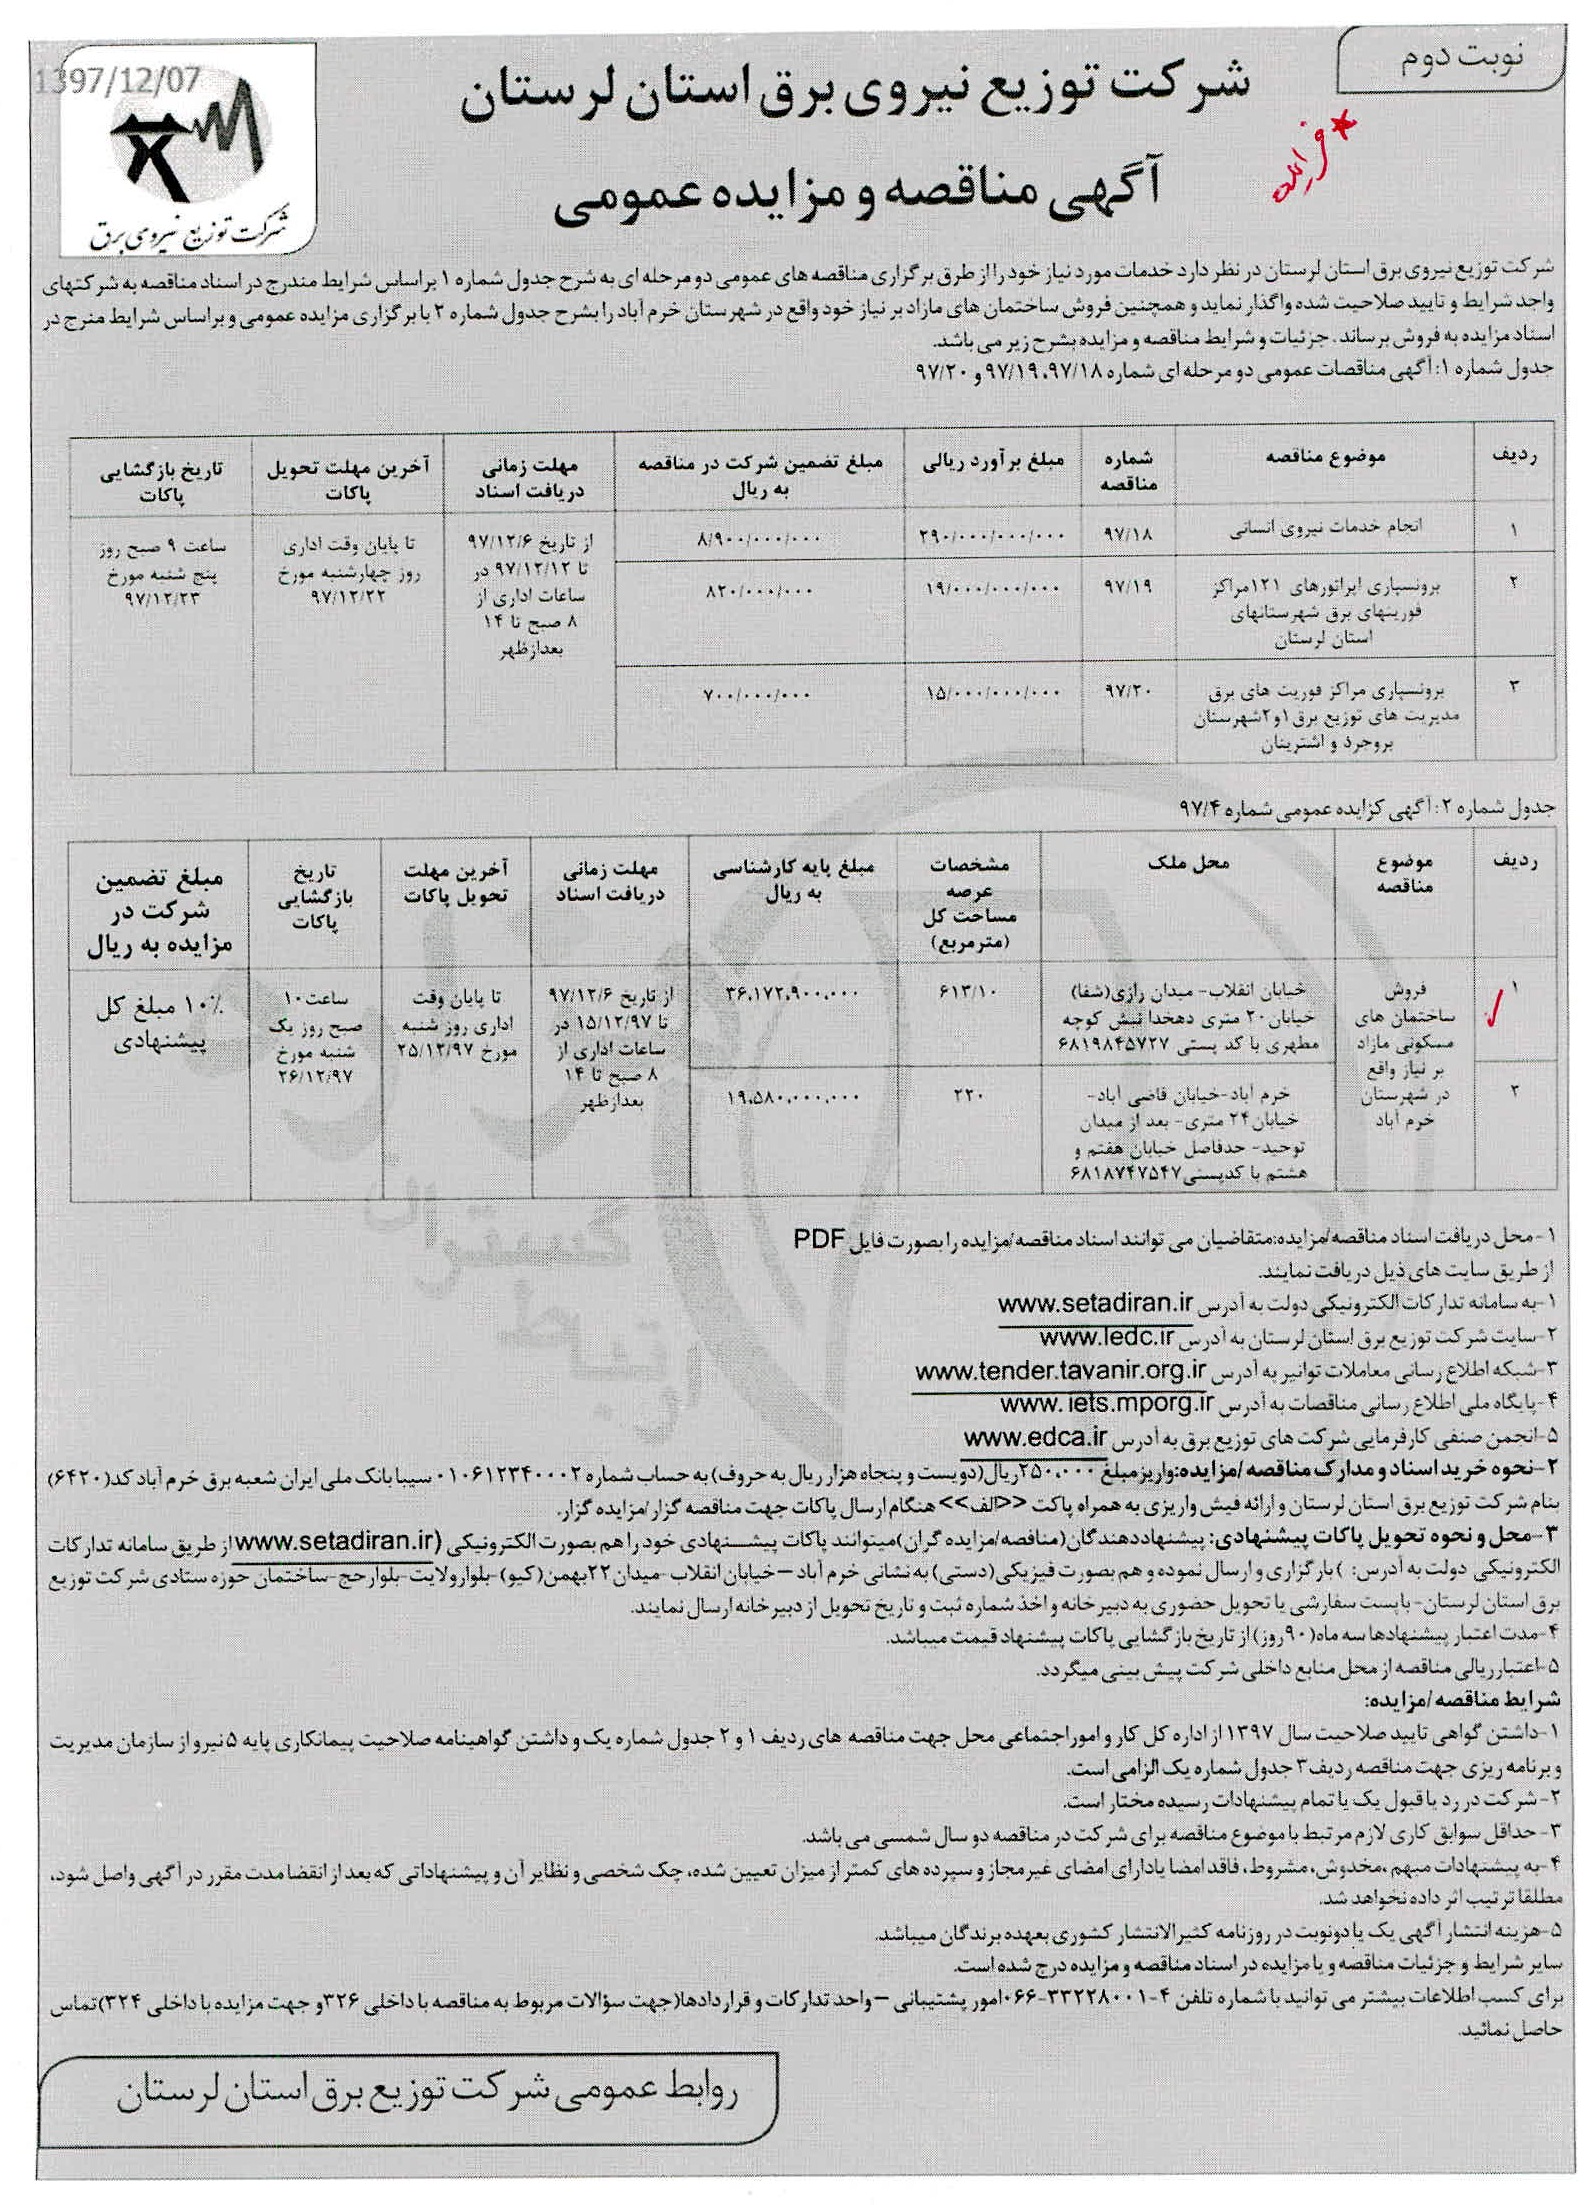 نوبت دوم
1397/12/07
شرکت توزیع نیروی برق استان لرستان
آگهی مناقصه و مزایده عمومی
شرکت توزیع نیروی برق
شرکت توزیع نیروی برق استان لرستان در نظر دارد خدمات مورد نیاز خود را از طرق برگزاری مناقصه های عمومی دو مرحله ای به شرح جدول شماره ۱ براساس شرایط مندرج در اسناد مناقصه به شرکتهای
واجد شرایط و تایید صلاحیت شده واگذار نماید و همچنین فروش ساختمان های مازاد بر نیاز خود واقع در شهرستان خرم آباد را بشرح جدول شماره ۲ با برگزاری مزایده عمومی و براساس شرایط منرج در
اسناد مزایده به فروش برساند. جزئیات و شرایط مناقصه و مزایده بشرح زیر می باشد.
جدول شماره ۱: آگهی مناقصات عمومی دو مرحله ای شماره ۹۷/۱۸، ۹۷/۱۹ و ۹۷/۲۰
ردیف | موضوع مناقصه | شماره مناقصه | مبلغ برآورد ریالی | مبلغ تضمین شرکت در مناقصه به ریال | مهلت زمانی دریافت اسناد | آخرین مهلت تحویل پاکات | تاریخ بازگشایی پاکات
۱ | انجام خدمات نیروی انسانی | ۹۷/۱۸ | ۲۹۰/۰۰۰/۰۰۰/۰۰۰ | ۸/۹۰۰/۰۰۰/۰۰۰ | از تاریخ ۹۷/۱۲/۶ تا ۹۷/۱۲/۱۲ در ساعات اداری از ۸ صبح تا ۱۴ بعدازظهر | تا پایان وقت اداری روز چهارشنبه مورخ ۹۷/۱۲/۲۲ | ساعت ۹ صبح روز پنج شنبه مورخ ۹۷/۱۲/۲۳
۲ | برونسپاری اپراتورهای ۱۲۱ مراکز فوریتهای برق شهرستانهای استان لرستان | ۹۷/۱۹ | ۱۹/۰۰۰/۰۰۰/۰۰۰ | ۸۲۰/۰۰۰/۰۰۰
۳ | برونسپاری مراکز فوریت های برق مدیریت های توزیع برق ۱و۲ شهرستان بروجرد و اشترینان | ۹۷/۲۰ | ۱۵/۰۰۰/۰۰۰/۰۰۰ | ۷۰۰/۰۰۰/۰۰۰
جدول شماره ۲: آگهی کزایده عمومی شماره ۹۷/۴
ردیف | موضوع مناقصه | محل ملک | مشخصات عرصه مساحت کل (مترمربع) | مبلغ پایه کارشناسی به ریال | مهلت زمانی دریافت اسناد | آخرین مهلت تحویل پاکات | تاریخ بازگشایی پاکات | مبلغ تضمین شرکت در مزایده به ریال
۱ | فروش ساختمان های مسکونی مازاد بر نیاز واقع در شهرستان خرم آباد | خیابان انقلاب- میدان رازی(شفا) خیابان ۲۰ متری دهخدا نبش کوچه مطهری با کد پستی ۶۸۱۹۸۴۵۷۲۷ | ۶۱۳/۱۰ | ۳۶،۱۷۲،۹۰۰،۰۰۰ | از تاریخ ۹۷/۱۲/۶ تا ۱۵/۱۲/۹۷ در ساعات اداری از ۸ صبح تا ۱۴ بعدازظهر | تا پایان وقت اداری روز شنبه مورخ ۲۵/۱۲/۹۷ | ساعت ۱۰ صبح روز یک شنبه مورخ ۲۶/۱۲/۹۷ | ۱۰٪ مبلغ کل پیشنهادی
۲ | خرم آباد-خیابان قاضی آباد- خیابان ۲۴ متری- بعد از میدان توحید- حدفاصل خیابان هفتم و هشتم با کدپستی ۶۸۱۸۷۴۷۵۴۷ | ۲۲۰ | ۱۹،۵۸۰،۰۰۰،۰۰۰
۱-محل دریافت اسناد مناقصه/مزایده:متقاضیان می توانند اسناد مناقصه/مزایده را بصورت فایل PDF
از طریق سایت های ذیل دریافت نمایند.
۱-به سامانه تدارکات الکترونیکی دولت به آدرس www.setadiran.ir
۲-سایت شرکت توزیع برق استان لرستان به آدرس www.ledc.ir
۳-شبکه اطلاع رسانی معاملات توانیر به آدرس www.tender.tavanir.org.ir
۴-پایگاه ملی اطلاع رسانی مناقصات به آدرس www. iets.mporg.ir
۵-انجمن صنفی کارفرمایی شرکت های توزیع برق به آدرس www.edca.ir
۲-نحوه خرید اسناد و مدارک مناقصه /مزایده:واریز مبلغ ۲۵۰،۰۰۰ ریال(دویست و پنجاه هزار ریال به حروف) به حساب شماره ۰۱۰۶۱۲۳۴۰۰۰۲ سیبا بانک ملی ایران شعبه برق خرم آباد کد(۶۴۲۰)
بنام شرکت توزیع برق استان لرستان و ارائه فیش واریزی به همراه پاکت <<الف>> هنگام ارسال پاکات جهت مناقصه گزار/مزایده گزار.
۳-محل و نحوه تحویل پاکات پیشنهادی: پیشنهاددهندگان(مناقصه/مزایده گران)میتوانند پاکات پیشنهادی خود را هم بصورت الکترونیکی (www.setadiran.ir از طریق سامانه تدارکات
الکترونیکی دولت به آدرس: ) بارگزاری و ارسال نموده و هم بصورت فیزیکی(دستی) به نشانی خرم آباد –خیابان انقلاب-میدان ۲۲بهمن(کیو)-بلوارولایت-بلوارحج-ساختمان حوزه ستادی شرکت توزیع
برق استان لرستان-باپست سفارشی یا تحویل حضوری به دبیرخانه و اخذ شماره ثبت و تاریخ تحویل از دبیرخانه ارسال نمایند.
۴-مدت اعتبار پیشنهادها سه ماه(۹۰روز) از تاریخ بازگشایی پاکات پیشنهاد قیمت میباشد.
۵-اعتبار ریالی مناقصه از محل منابع داخلی شرکت پیش بینی میگردد.
شرایط مناقصه /مزایده:
۱-داشتن گواهی تایید صلاحیت سال ۱۳۹۷ از اداره کل کار و امور اجتماعی محل جهت مناقصه های ردیف ۱ و ۲ جدول شماره یک و داشتن گواهینامه صلاحیت پیمانکاری پایه ۵ نیرو از سازمان مدیریت
و برنامه ریزی جهت مناقصه ردیف ۳ جدول شماره یک الزامی است.
۲-شرکت در رد یا قبول یک یا تمام پیشنهادات رسیده مختار است.
۳-حداقل سوابق کاری لازم مرتبط با موضوع مناقصه برای شرکت در مناقصه دو سال شمسی می باشد.
۴-به پیشنهادات مبهم ،مخدوش، مشروط، فاقد امضا یادارای امضای غیرمجاز و سپرده های کمتر از میزان تعیین شده، چک شخصی و نظایر آن و پیشنهاداتی که بعد از انقضا مدت مقرر در آگهی واصل شود،
مطلقا ترتیب اثر داده نخواهد شد.
۵-هزینه انتشار آگهی یک یا دونوبت در روزنامه کثیرالانتشار کشوری بعهده برندگان میباشد.
سایر شرایط و جزئیات مناقصه و یا مزایده در اسناد مناقصه و مزایده درج شده است.
برای کسب اطلاعات بیشتر می توانید با شماره تلفن ۴-۳۳۲۲۸۰۰۱-۰۶۶امور پشتیبانی –واحد تدارکات و قراردادها(جهت سؤالات مربوط به مناقصه با داخلی ۳۲۶و جهت مزایده با داخلی ۳۲۴)تماس
حاصل نمائید.
روابط عمومی شرکت توزیع برق استان لرستان